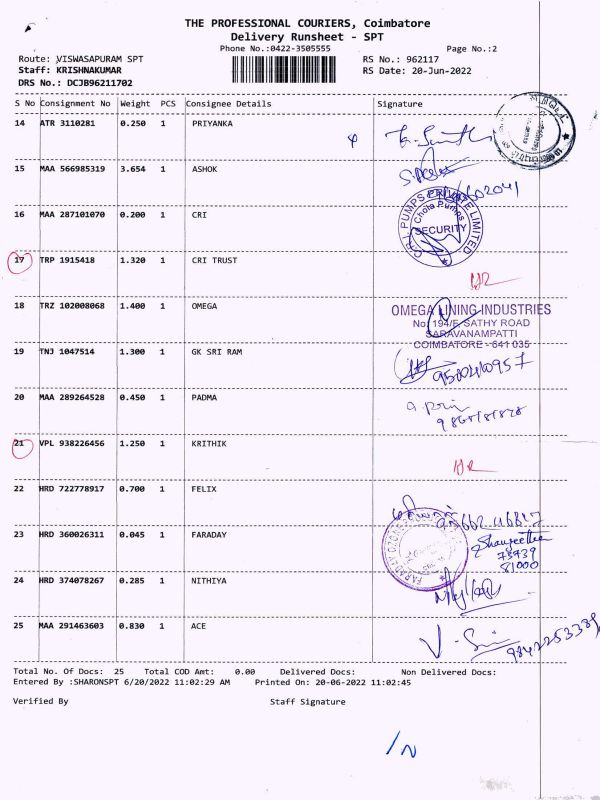 THE PROFESSIONAL COURIERS, Coimbatore
Delivery Runsheet - SPT
Phone No.:0422-3505555 Page No.:2
Route: VISWASAPURAM SPT RS No.: 962117
Staff: KRISHNAKUMAR RS Date: 20-Jun-2022
DRS No.: DCJB96211702
S No Consignment No Weight PCS Consignee Details Signature
14 ATR 3110281 0.250 1 PRIYANKA
15 MAA 566985319 3.654 1 ASHOK
16 MAA 287101070 0.200 1 CRI
C.R.I. PUMPS PRIVATE LIMITED
Chola Pumps
SECURITY
17 TRP 1915418 1.320 1 CRI TRUST
18 TRZ 102008068 1.400 1 OMEGA
OMEGA LINING INDUSTRIES
No. 194/F, SATHY ROAD
SARAVANAMPATTI
COIMBATORE - 641 035
19 TNJ 1047514 1.300 1 GK SRI RAM
20 MAA 289264528 0.450 1 PADMA
21 VPL 938226456 1.250 1 KRITHIK
22 HRD 722778917 0.700 1 FELIX
23 HRD 360026311 0.045 1 FARADAY
73939
81000
24 HRD 374078267 0.285 1 NITHIYA
25 MAA 291463603 0.830 1 ACE
9842253389
Total No. Of Docs: 25 Total COD Amt: 0.00 Delivered Docs: Non Delivered Docs:
Entered By :SHARONSPT 6/20/2022 11:02:29 AM Printed On: 20-06-2022 11:02:45
Verified By Staff Signature